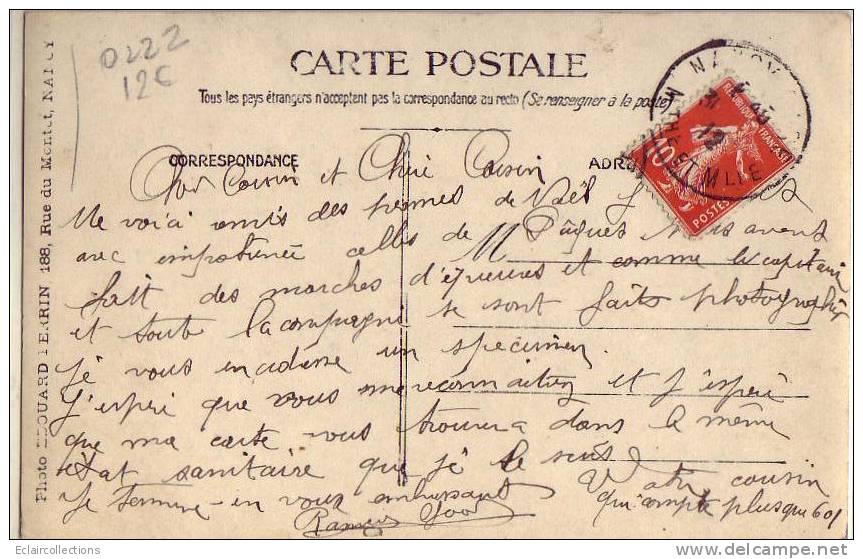 0222
12€
CARTE POSTALE
Tous les pays étrangers n'acceptent pas la correspondance au recto (Se renseigner à la poste)
CORRESPONDANCE
ADR
NANCY
MTHE ET MLLE
REPUBLIQUE FRANÇAISE
10
POSTES
Cher Cousin et Chère Cousine
Me voici remis des permes de Noël
avec impatience celles de Pâques nous avons
fait des marches d'épreuves et comme le capitaine
et toute la compagnie se sont faits photographier
je vous en adresse un spécimen
J'espère que vous me reconnaitrez et j'espère
que ma carte vous trouvera dans le même
état sanitaire que je le suis
Je termine en vous embrassant
Votre cousin
qui compte plus que 601
Photo EDOUARD PERRIN 188, Rue du Montet, NANCY
Eclaircollections
www.delcampe.net